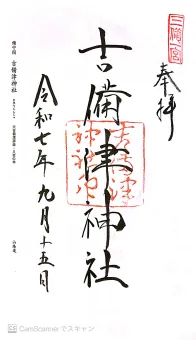 三備一宮
奉拝
吉備津神社
吉備津神社
令和七年九月十五日
備中國 吉備津神社
CamScannerでスキャン